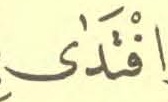 افْتَدٰى